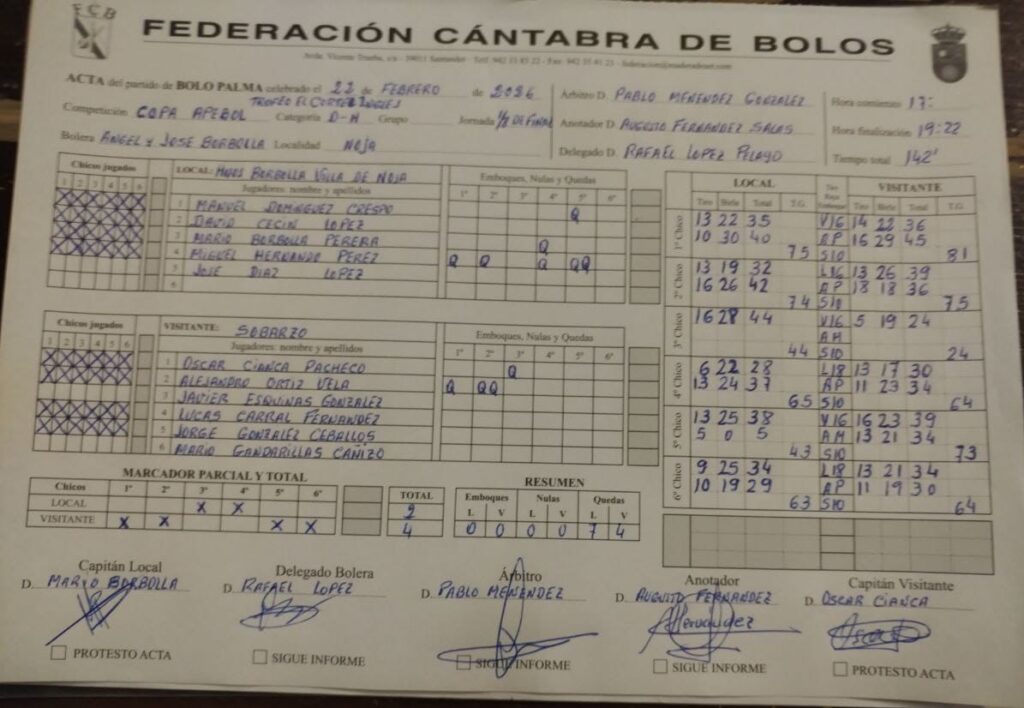 FCB
FEDERACIÓN CÁNTABRA DE BOLOS
ACTA del partido de BOLO PALMA celebrado el 22 de FEBRERO de 2026
Arbitro D. PABLO MENENDEZ GONZALEZ
Hora comienzo 17:
TROFEO EL CORTE INGLES
Competición COPA APEBOL Categoría D-H Grupo Jornada 1/8 DE FINAL
Anotador D. AUGUSTO FERNANDEZ SALAS
Hora finalización 19:22
Bolera ANGEL y JOSE BORBOLLA Localidad NOJA
Delegado D. RAFAEL LOPEZ PELAYO
Tiempo total 142'
Chicos jugados
1 2 3 4 5 6
LOCAL: HNOS BORBOLLA VILLA DE NOJA
Jugadores: nombre y apellidos
Emboques, Nulas y Quedas
1º 2º 3º 4º 5º 6º
1 MANUEL DOMINGUEZ CRESPO Q
2 DAVID CECIN LOPEZ
3 MARIO BORBOLLA PERERA Q
4 MIGUEL HERNANDO PEREZ Q Q Q QQ
5 JOSE DIAZ LOPEZ
6
Chicos jugados
1 2 3 4 5 6
VISITANTE: SOBARZO
Jugadores: nombre y apellidos
Emboques, Nulas y Quedas
1º 2º 3º 4º 5º 6º
1 OSCAR CIANCA PACHECO Q
2 ALEJANDRO ORTIZ VELA Q QQ
3 JAVIER ESQUINAS GONZALEZ
4 LUCAS CARRAL FERNANDEZ
5 JORGE GONZALEZ CEBALLOS
6 MARIO GANDARILLAS CAÑIZO
LOCAL VISITANTE
Tiro Birle Total T.G. Tiro Birle Total T.G.
1º Chico
13 22 35 V16 14 22 36
10 30 40 AP 16 29 45
75 S10 81
2º Chico
13 19 32 L16 13 26 39
16 26 42 AP 18 18 36
74 S10 75
3º Chico
16 28 44 V16 5 19 24
AM
44 S10 24
4º Chico
6 22 28 L18 13 17 30
13 24 37 AP 11 23 34
65 S10 64
5º Chico
13 25 38 V16 16 23 39
5 0 5 AM 13 21 34
43 S10 73
6º Chico
9 25 34 L18 13 21 34
10 19 29 AP 11 19 30
63 S10 64
MARCADOR PARCIAL Y TOTAL
Chicos 1º 2º 3º 4º 5º 6º TOTAL
LOCAL X X 2
VISITANTE X X X X 4
RESUMEN
Emboques Nulas Quedas
L V L V L V
0 0 0 0 7 4
Capitán Local
D. MARIO BORBOLLA
PROTESTO ACTA
Delegado Bolera
D. RAFAEL LOPEZ
SIGUE INFORME
Árbitro
D. PABLO MENENDEZ
SIGUE INFORME
Anotador
D. AUGUSTO FERNANDEZ
SIGUE INFORME
Capitán Visitante
D. OSCAR CIANCA
PROTESTO ACTA